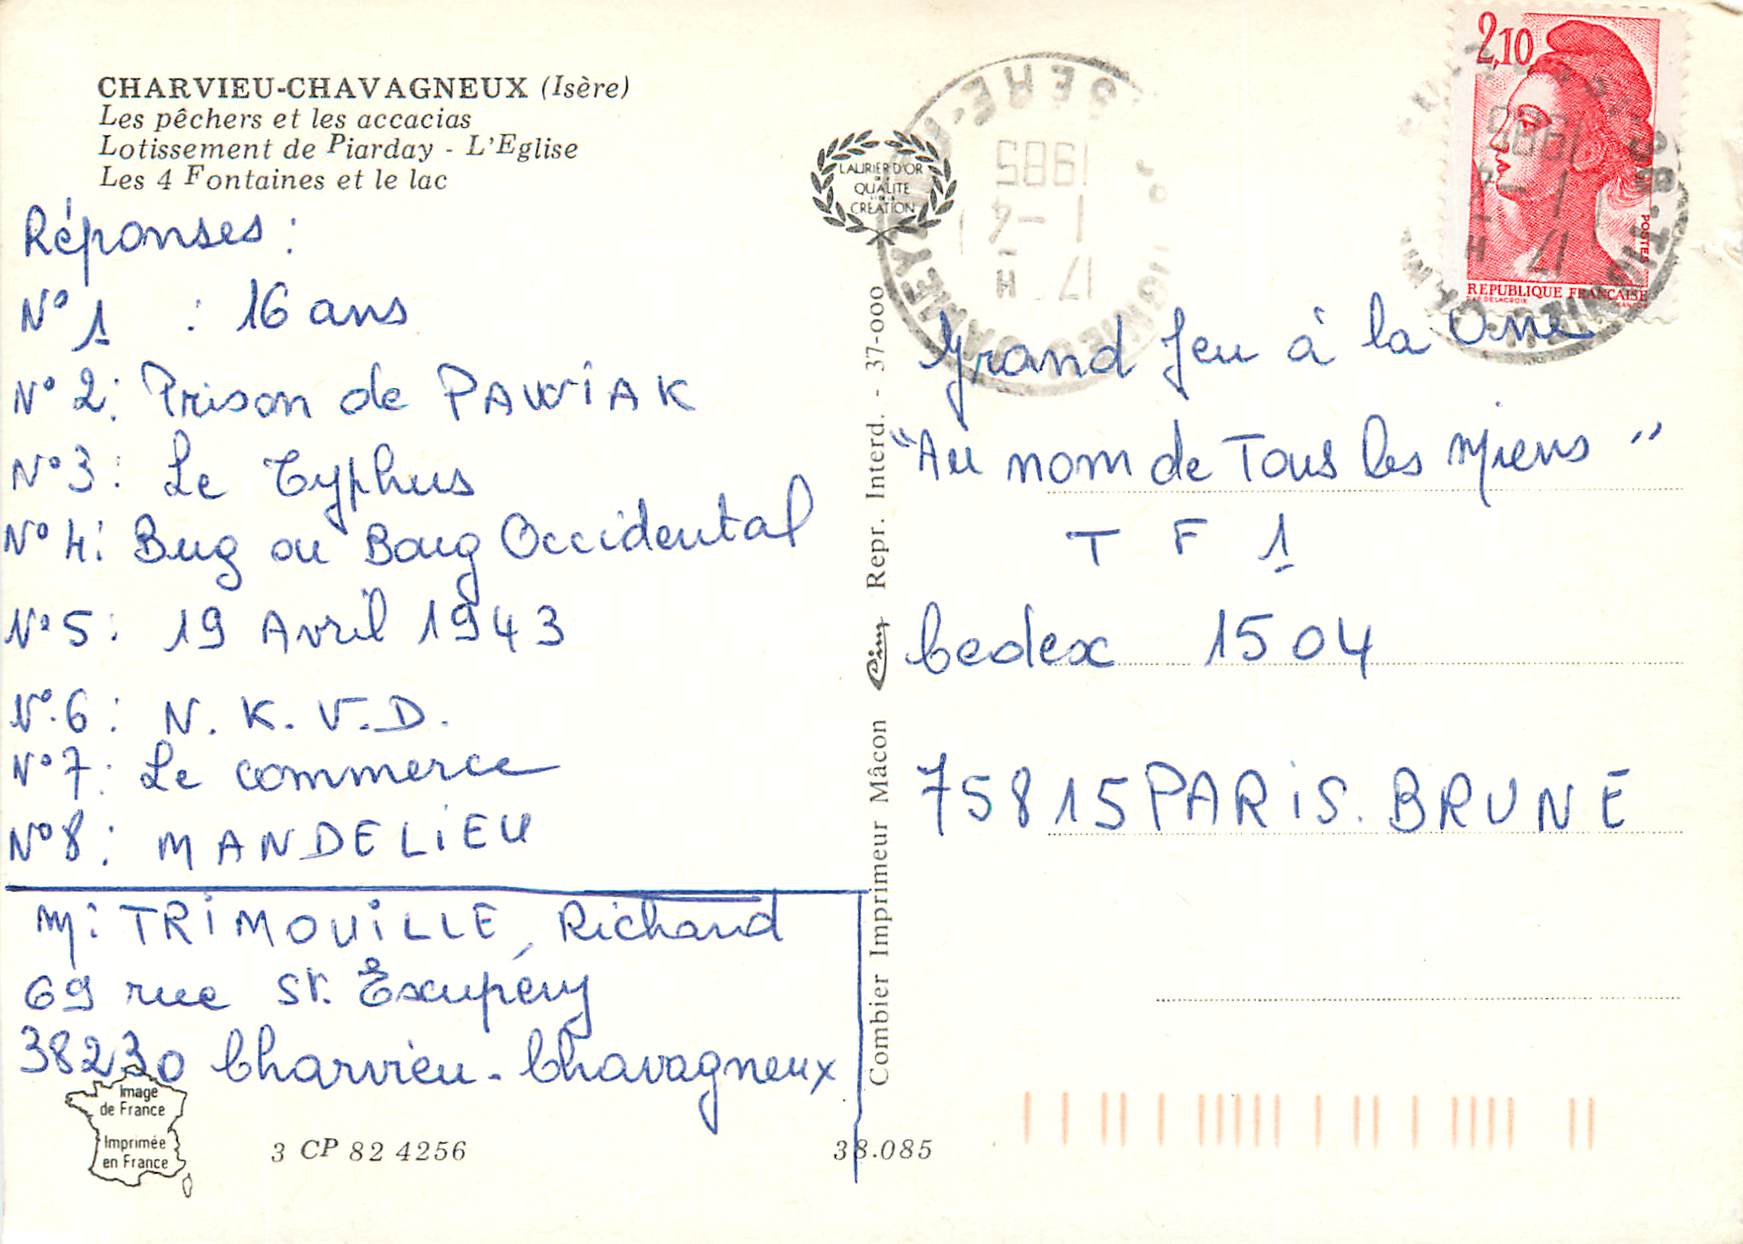 CHARVIEU-CHAVAGNEUX (Isère)
Les pêchers et les accacias
Lotissement de Piarday - L'Eglise
Les 4 Fontaines et le lac
Réponses :
N° 1 : 16 ans
N° 2 : Prison de PAWIAK
N° 3 : Le Typhus
N° 4 : Bug ou Boug Occidental
N° 5 : 19 Avril 1943
N° 6 : N. K. V. D.
N° 7 : Le commerce
N° 8 : MANDELIEU
M : TRIMOUILLE, Richard
69 rue St. Exupéry
38230 Charvieu - Chavagneux
Image
de France
Imprimée
en France
3 CP 82 4256
38.085
LAURIER D'OR
QUALITE
CREATION
Combier Imprimeur Mâcon Cim Repr. Interd. - 37-000
17 H
1 - 4
1985
ISERE
2,10
POSTES
REPUBLIQUE FRANÇAISE
Grand Jeu à la Une
"Au nom de Tous les Miens"
T F 1
Cedex 1504
75815 PARIS. BRUNE